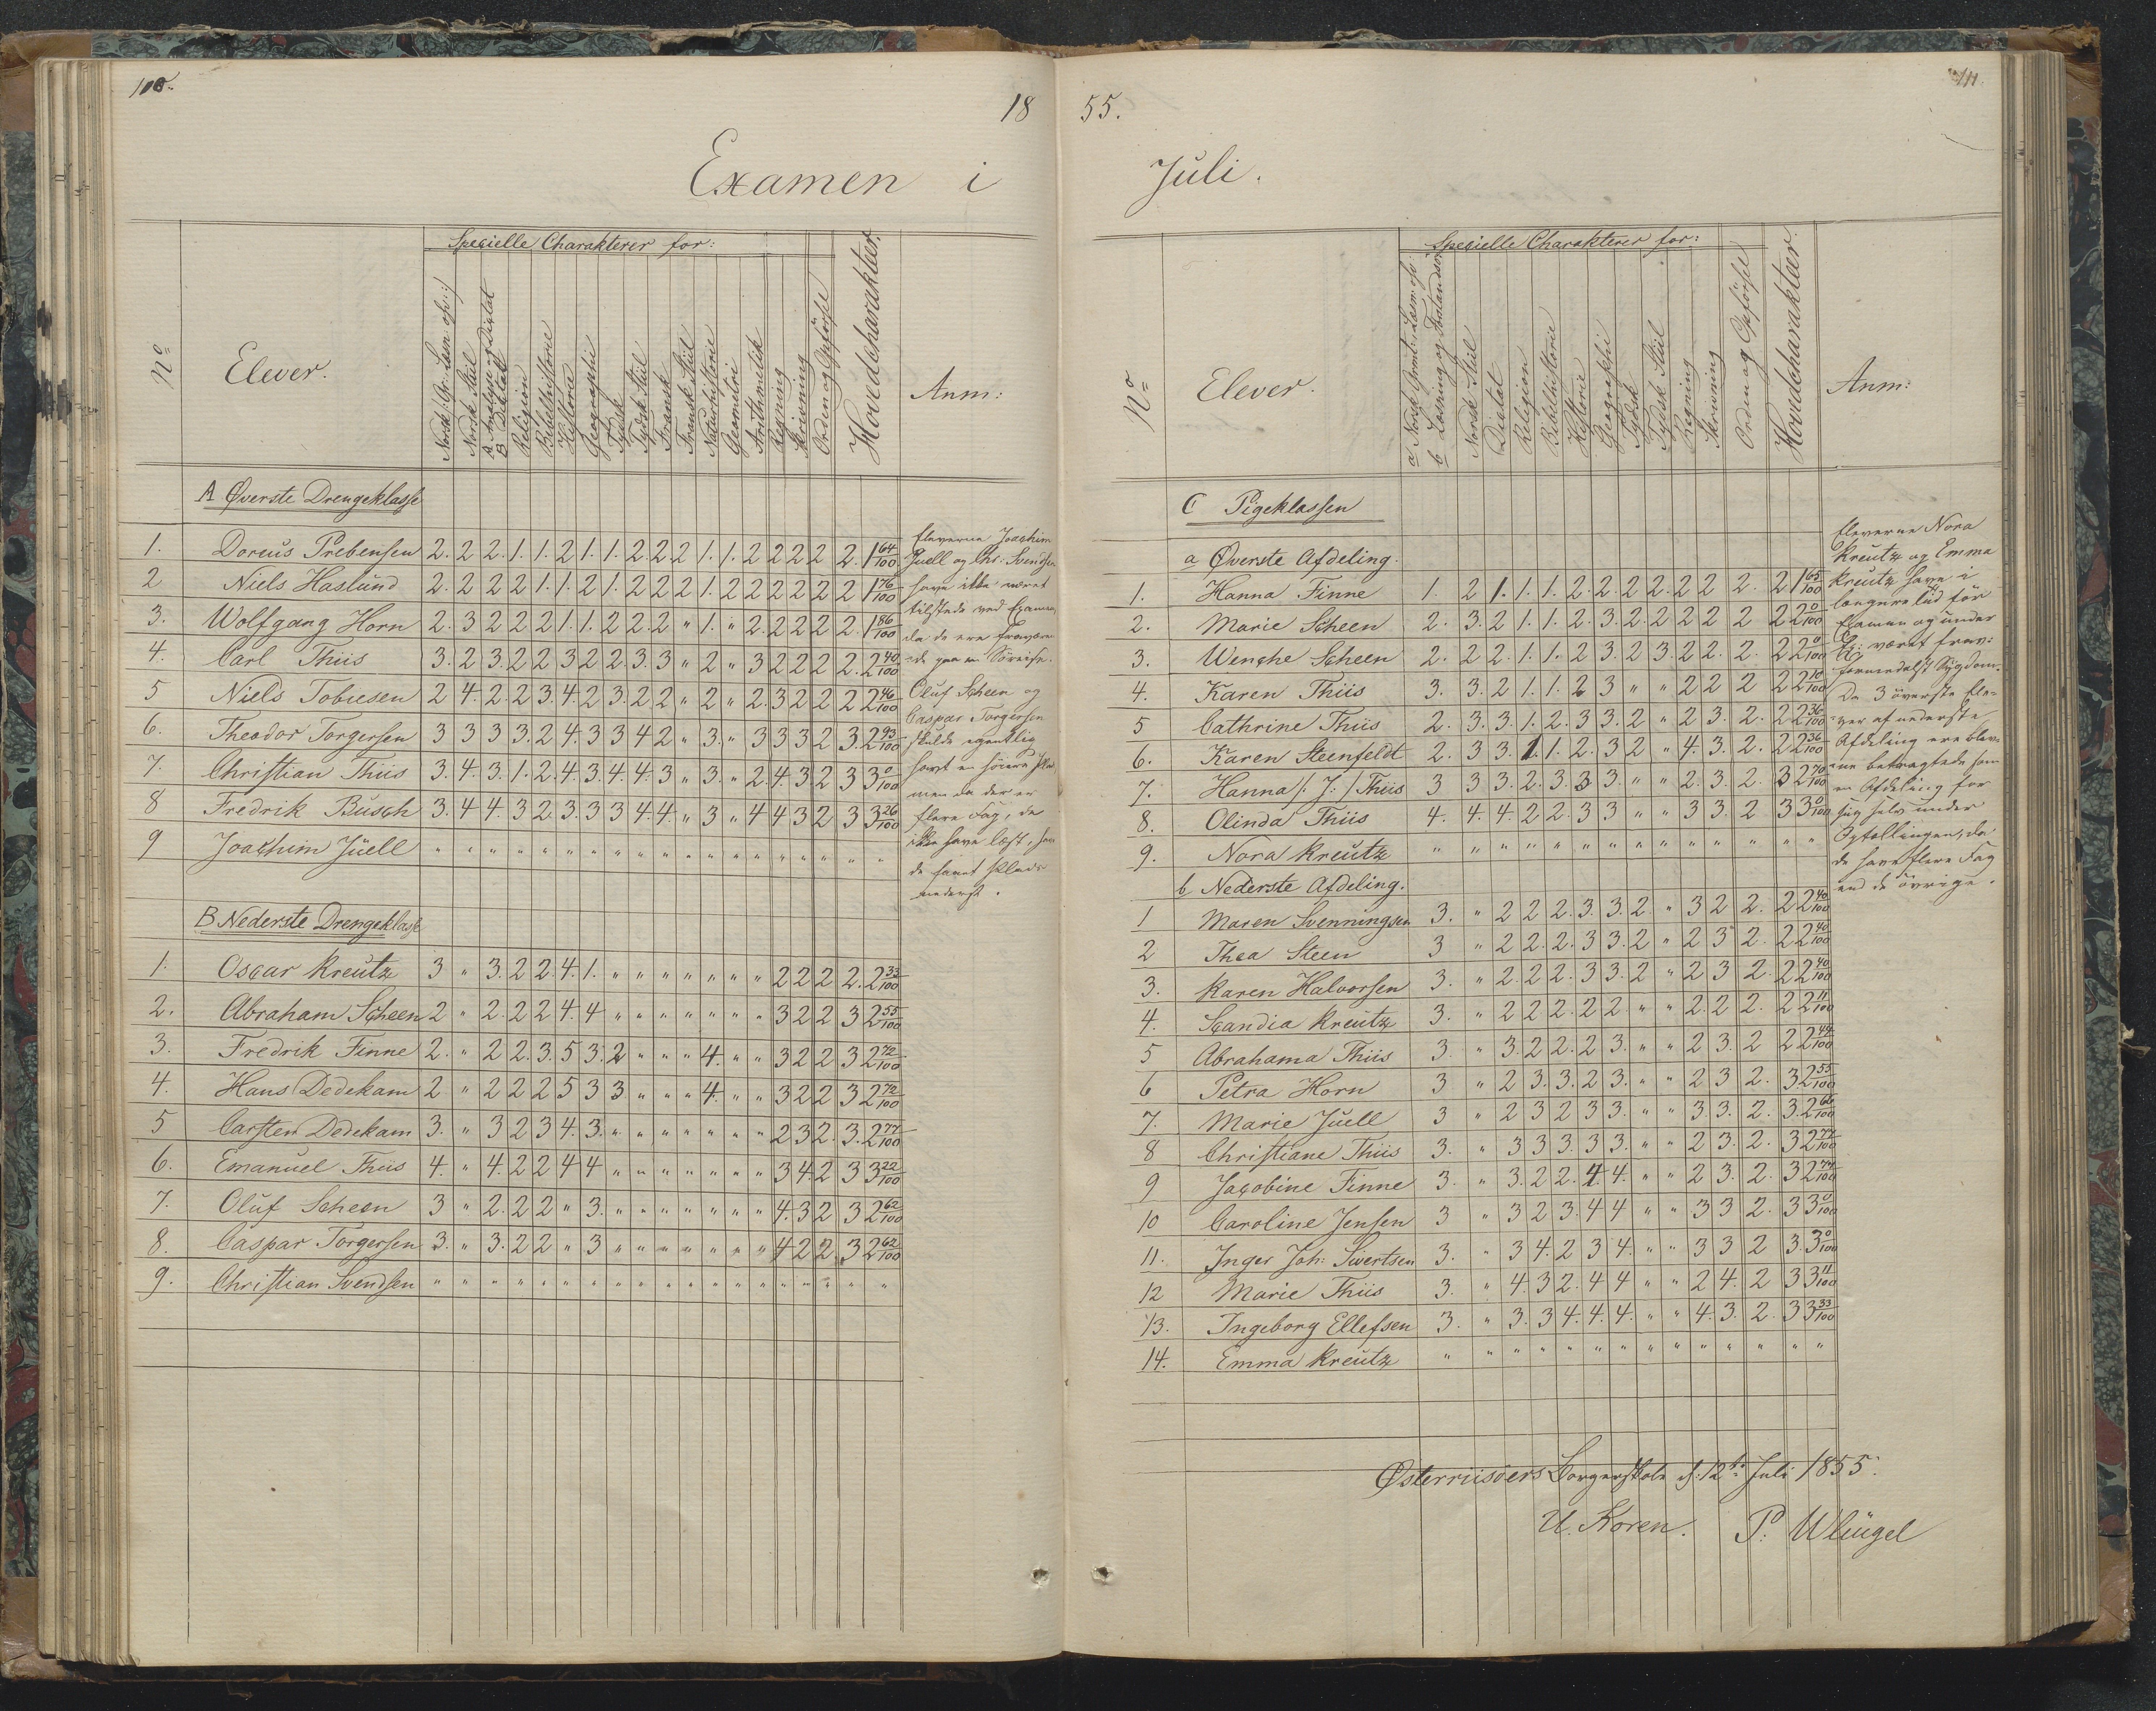 110.
18
Examen i
Specielle Charakterer for:
No
Elever.
Norsk Gr: Læsn. opv:
Norsk Stiil
A Analyse og Dictat
B Dictat
Religion
Bibelhistorie
Historie
Geographi
Tydsk
Tydsk Stiil
Fransk
Fransk Stiil
Naturhistorie
Geometri
Arithmetik
Regning
Skrivning
Orden og Opførsel
Hovedcharakteer.
Anm:
A Øverste Drengeklasse
1. Doreus Prebensen 2. 2 2. 1. 1. 2 1. 1. 2. 2. 2 1. 1. 2 2 2 2 2. 1 64/100
2 Niels Haslund 2. 2 2 2 1. 1. 2 1. 2 2 2 1. 2 2 2 2 2 2 1 76/100
3. Wolfgang Horn 2. 3 2 2 2 1. 1. 2 2. 2 " 1. " 2. 2 2 2 2. 1 86/100
4. Carl Thiis 3. 2 3. 2 2 3 2 2. 3. 3 " 2 " 3 2 2 2 2. 2 40/100
5 Niels Tobiesen 2 4. 2. 2 3. 4. 2 3. 2 2 " 2 " 2. 3 2 2 2 2 46/100
6. Theodor Torgersen 3 3 3 3. 2 4. 3 3 4 2 " 3. " 3 3 3 2 3. 2 93/100
7. Christian Thiis 3. 4. 3. 1. 2. 4. 3. 4. 4. 3 " 3. " 2. 4. 3 2 3 3 0/100
8 Fredrik Busch 3. 4 4. 3 2. 3. 3 3 4. 4. " 3 " 4 4 3 2 3 3 26/100
9 Joachim Juell " " " " " " " " " " " " " " " " " " "
Eleverne Joachim
Juell og Chr. Svendsen
have ikke været
tilstede ved Examen,
da de ere fraværen-
de paa en Søreise.
Oluf Scheen og
Caspar Torgersen
skulde egentlig
havt en høiere Plads,
men da der er
flere Fag, de
ikke have læst, have
de faaet Plads
nederst.
B. Nederste Drengeklasse
1. Oscar Kreutz 3 " 3. 2 2. 4. 1. " " " " " " " 2 2 2 2. 2 33/100
2. Abraham Scheen 2 " 2. 2 2 4. 4 " " " " " " " 3 2 2 3 2 55/100
3. Fredrik Finne 2. " 2 2. 3. 5 3. 2 " " " 4. " " 3 2 2 3 2 72/100
4. Hans Dedekam 2 " 2 2 2 5 3 3 " " " 4. " " 3 2 2 3 2 72/100
5 Carsten Dedekam 3. " 3 2 3 4. 3. " " " " " " " 2 3 2. 3. 2 77/100
6. Emanuel Thiis 4. " 4. 2 2 4 4 " " " " " " " 3 4. 2 3 3 22/100
7. Oluf Scheen 3 " 2. 2 2 " 3. " " " " " " " 4. 3 2 3 2 62/100
8. Caspar Torgersen 3. " 3. 2 2 " 3 " " " " " " " 4 2 2 3 2 62/100
9. Christian Svendsen " " " " " " " " " " " " " " " " " " "
111.
55.
Juli.
Specielle Charakterer for:
No
Elever.
a Norsk Gmt: Læsn. opv.
b Læsning og Forstandsøv.
Norsk Stiil
Dictat
Religion
Bibelhistorie
Historie
Geographi
Tydsk
Tydsk Stiil
Regning
Skrivning
Orden og Opførsel
Hovedcharakteer.
Anm:
C Pigeklassen
a Øverste Afdeling.
1. Hanna Finne 1. 2 1. 1. 1. 2. 2. 2 2. 2 2 2. 2 1 65/100
2. Marie Scheen 2. 3. 2 1. 1. 2. 3. 2. 2 2 2 2 2 2 0/100
3. Wenche Scheen 2. 2 2. 1. 1. 2 3. 2 3. 2 2. 2. 2 2 0/100
4. Karen Thiis 3. 3. 2 1. 1. 2 3 " " 2 2 2 2 2 10/100
5 Cathrine Thiis 2. 3. 3. 1. 2. 3 3. 2 " 2 3. 2. 2 2 36/100
6. Karen Steenfeldt 2. 3 3. 1. 1. 2. 3 2 " 4. 3. 2. 2 2 36/100
7. Hanna /: J: / Thiis 3 3 3. 2. 3. 3 3. " " 2. 3. 2. 3 2 70/100
8. Olinda Thiis 4. 4. 4. 2 2. 3 3 " " 3 3. 2 3 3 0/100
9. Nora Kreutz " " " " " " " " " " " " " "
Eleverne Nora
Kreutz og Emma
Kreutz have i
længere tid før
Examen og under
Ex: været frav:
formedelst Sygdom.
De 3 øverste Ele-
ver af nederste
Afdeling ere blev-
ne betragtede som
en Afdeling for
sig selv under
Opstillingen, da
de have flere Fag
end de øvrige.
b Nederste Afdeling.
1 Maren Svenningsen 3. " 2 2 2. 3. 3. 2. " 3 2 2. 2 2 40/100
2 Thea Steen 3 " 2 2. 2. 3 3. 2 " 2 3 2. 2 2 40/100
3. Karen Halvorsen 3. " 2. 2 2. 3 3. 2 " 2 3 2. 2 2 40/100
4. Scandia Kreutz 3. " 2 2 2. 2 2 " " 2. 2. 2. 2 2 11/100
5 Abrahama Thiis 3. " 3. 2 2. 2 3. " " 2 3. 2 2 2 44/100
6 Petra Horn 3 " 2 3. 3. 2 3. " " 2 3 2. 3. 2 55/100
7. Marie Juell 3 " 2 3 2 3 3. " " 3. 3. 2. 3. 2 66/100
8 Christiane Thiis 3. " 3 3 3. 3 3. " " 2 3. 2. 3 2 77/100
9 Jacobine Finne 3. " 3. 2 2. 4. 4. " " 2 3. 2. 3 2 77/100
10 Caroline Jensen 3 " 3 2 3. 4 4 " " 3 3 2. 3 3 0/100
11. Inger Joh: Sivertsen 3. " 3 4. 2 3 4. " " 3 3 2 3. 3 0/100
12 Marie Thiis 3. " 4. 3 2. 4 4 " " 2 4. 2 3 3 11/100
13. Ingeborg Ellefsen 3. " 3. 3 4. 4. 4. " " 4. 3. 2. 3 3 33/100
14. Emma Kreutz " " " " " " " " " " " " " "
Østerriisøers Borgerskole d: 12te Juli 1855.
U. Koren. P. Wleügel